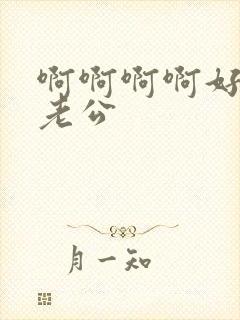 啊啊啊啊好
老公
月一知